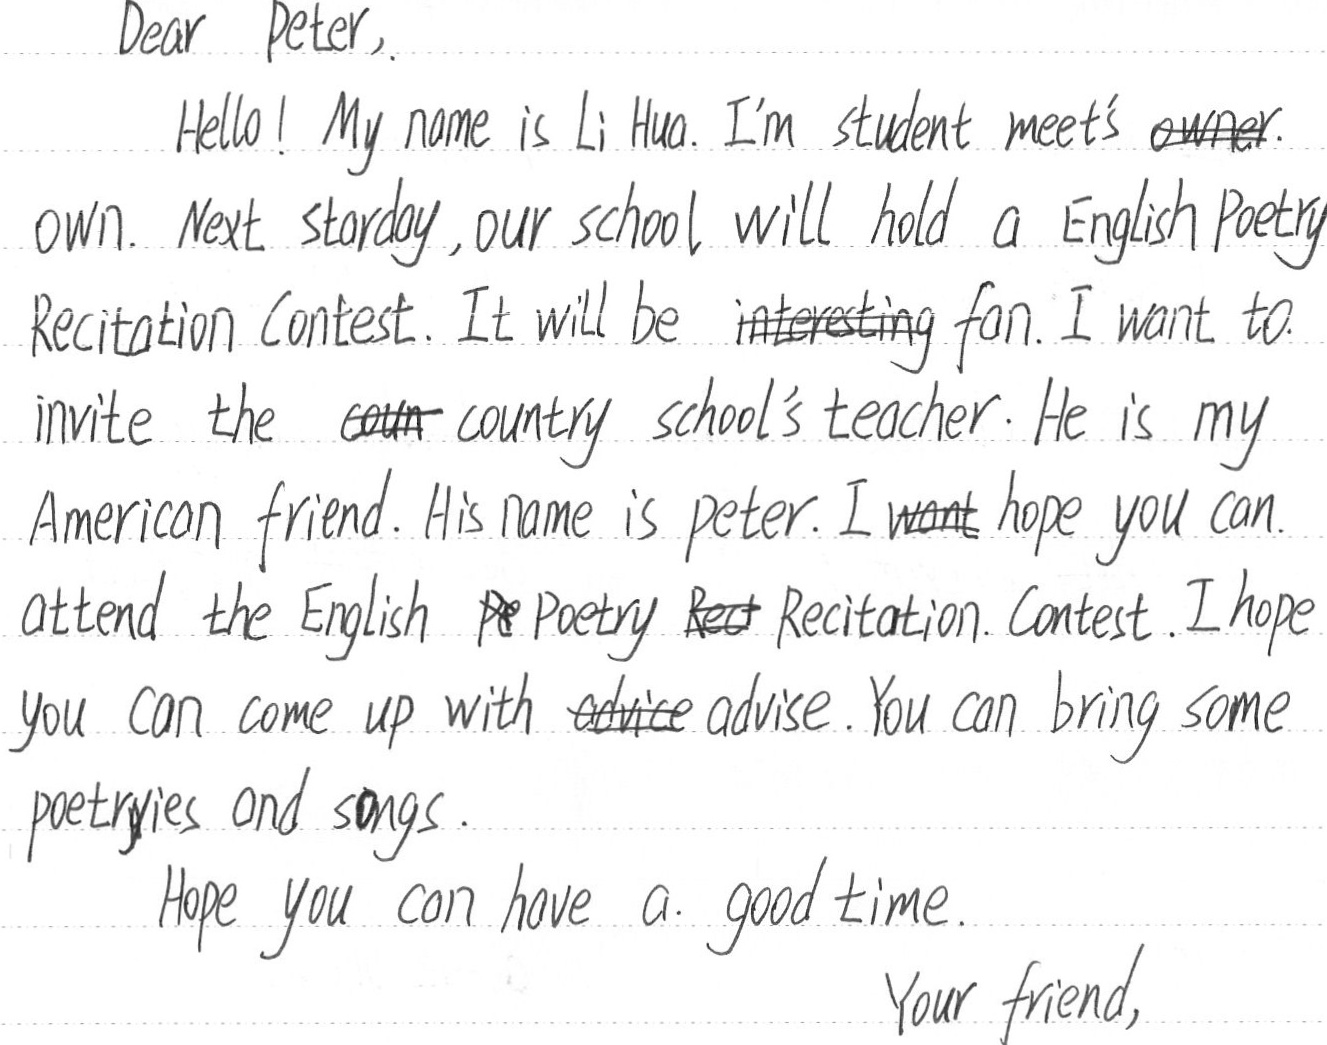 Dear Peter,
Hello! My name is Li Hua. I'm student meet's owner.
own. Next storday, our school will hold a English Poetry
Recitation Contest. It will be interesting fan. I want to.
invite the coun country school's teacher. He is my
American friend. His name is peter. I want hope you can.
attend the English Pe Poetry Rect Recitation. Contest. I hope
you can come up with advice advise. You can bring some
poetryies and songs.
Hope you can have a. good time.
Your friend,